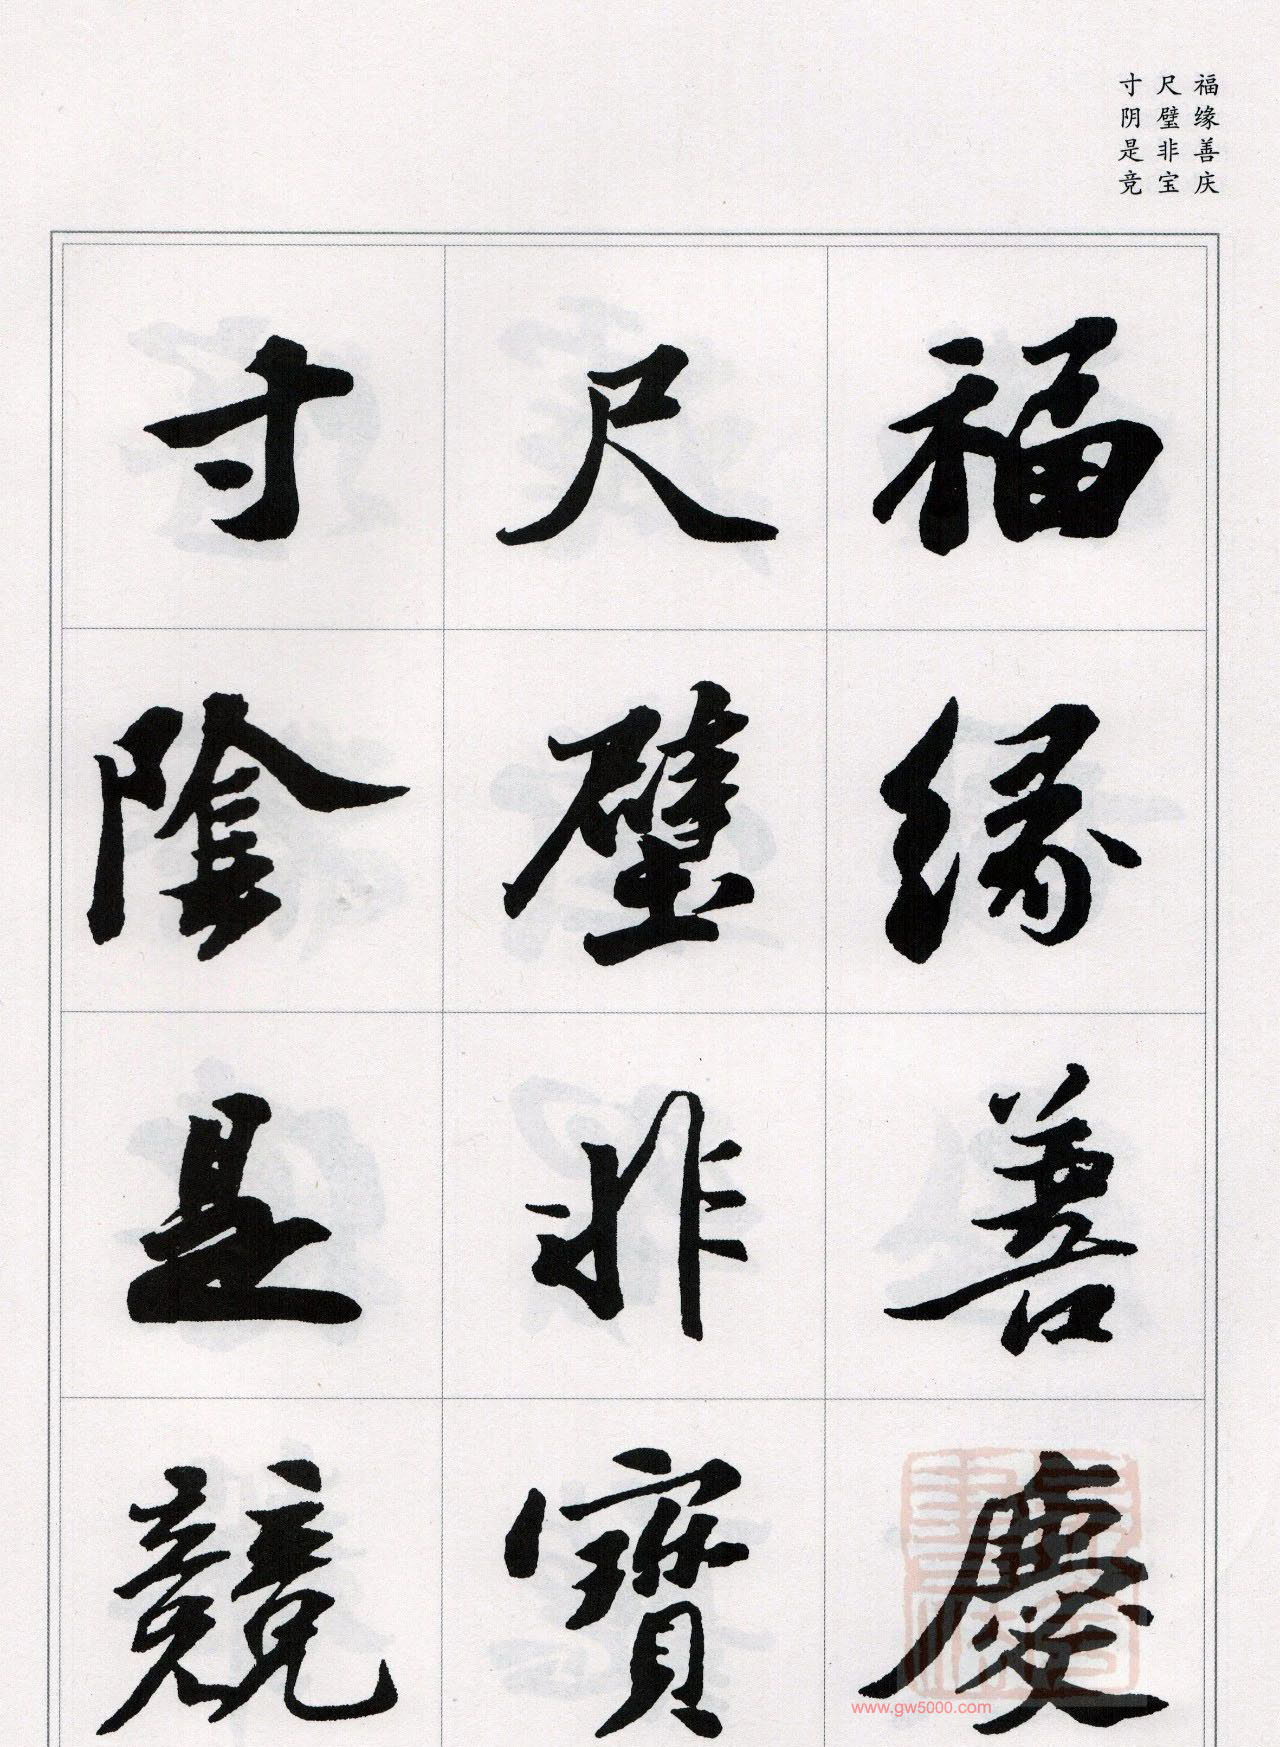 福缘善庆
尺璧非宝
寸阴是竞
福緣善慶
尺璧非寶
寸陰是競
www.gw5000.com